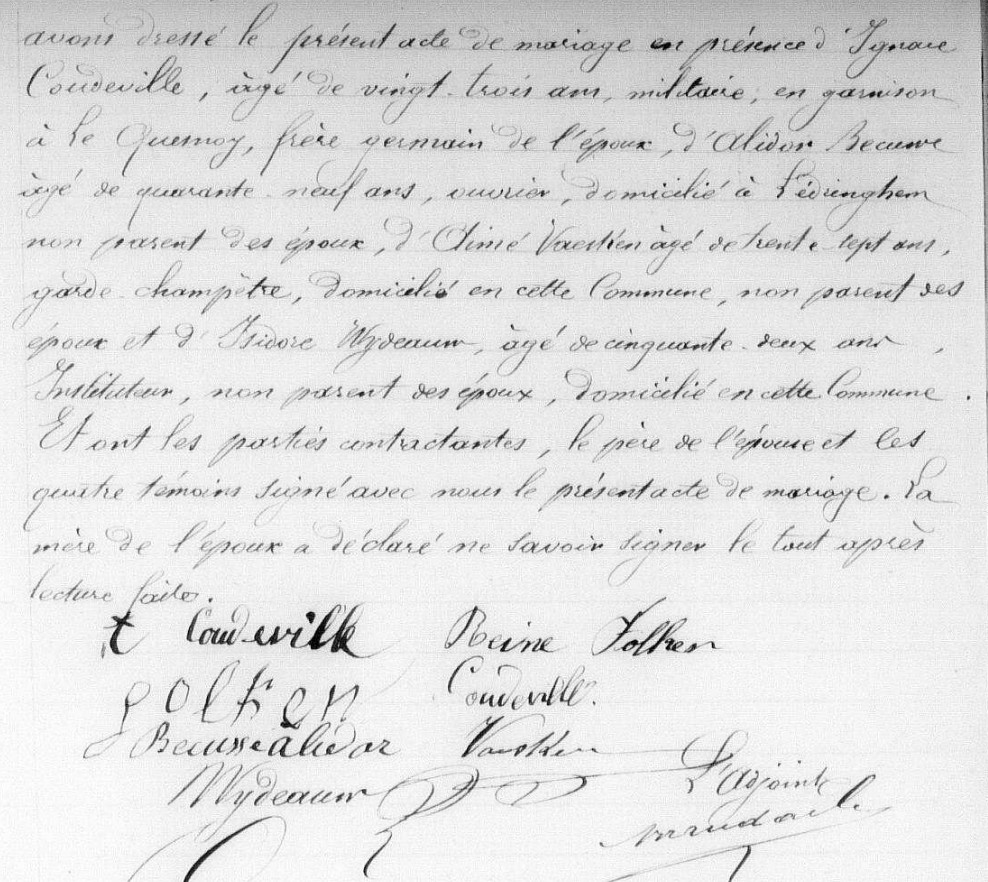 avons dressé le présent acte de mariage en présence d'Ignace
Coudeville, âgé de vingt-trois ans, militaire, en garnison
à Le Quesnoy, frère germain de l'époux, d'Alidor Becuwe
âgé de quarante-neuf ans, ouvrier, domicilié à Lédringhem
non parent des époux, d'Aimé Vaesken âgé de trente sept ans,
garde-champêtre, domicilié en cette Commune, non parent des
époux et d'Isidore Wydeauw, âgé de cinquante-deux ans,
Instituteur, non parent des époux, domicilié en cette Commune.
Et ont les parties contractantes, le père de l'épouse et les
quatre témoins signé avec nous le présent acte de mariage. La
mère de l'époux a déclaré ne savoir signer le tout après
lecture faite.
Coudeville Reine Folken
Folken Coudeville.
Becuwe alidor Vaesken
Wydeauw L'adjoint